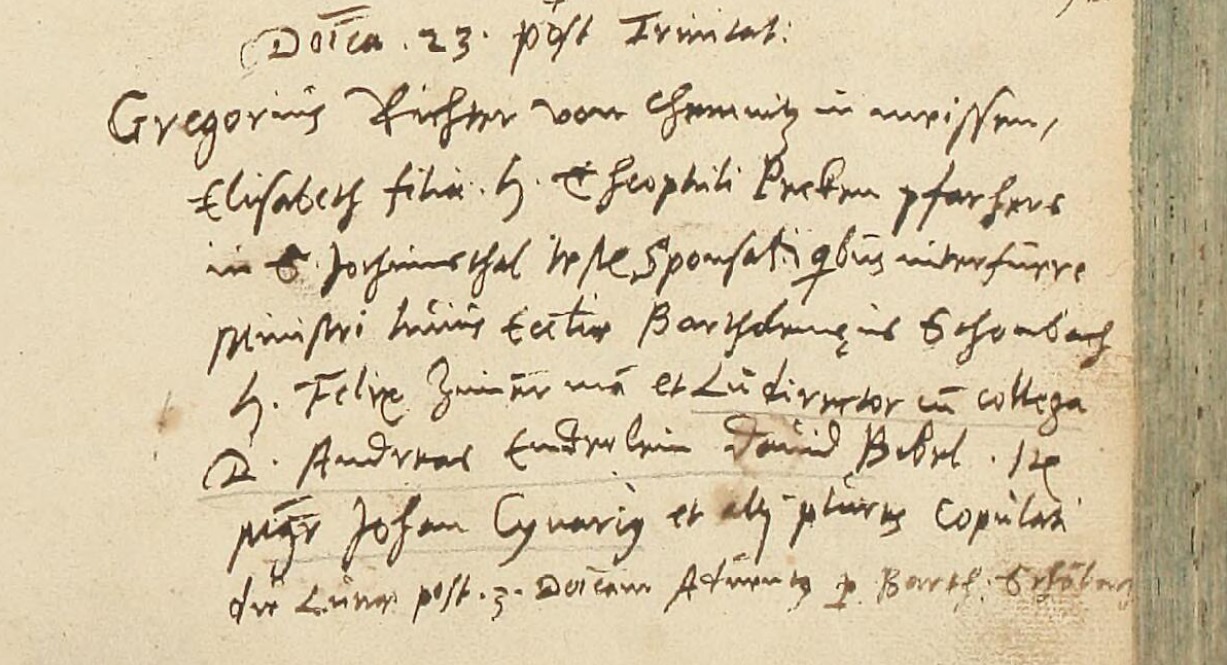 Doīca . 23 . post Trinitat:
Gregorius Richter von Chemnitz in meissen,
Elisabeth filia . H . Theophili Pecken pfarhers
in S. Jochimsthal teste Sponsali qbus interfuere
Ministri huius Eccliæ Bartholomęus Schonbach
H . Felix Zim̄erma͞ et Ludirector cū collega
D . Andreas Enderlein David Bebel . Ite͞
Mgr Johan Cynariq et alij plures Copulati
die Lunæ post . 3 . Doīcam Adventq p Barth. Schōbach